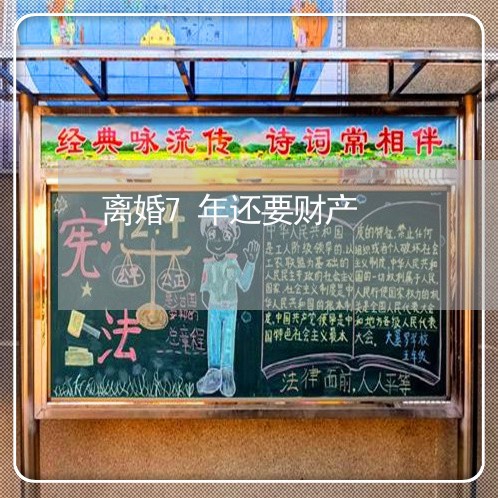 经典咏流传 诗词常相伴
离婚7年还要财产
12.4
宪
法
公平
公正
总章程
中华人民共和国
是工人阶级领导的,以
工农联盟为基础的
人民民主专政的社会主义
国家。社会主义制度是中
华人民共和国的根本制
度。中国共产党领导是中
国特色社会主义最本
质的特征。禁止任何
组织或者个人破坏社会
主义制度。中华人民共和
国的一切权利属于人民。
人民行使国家权力的机
关是全国人民代表大会
和地方各级人民代表
大会。
学校
五年级
法律面前,人人平等